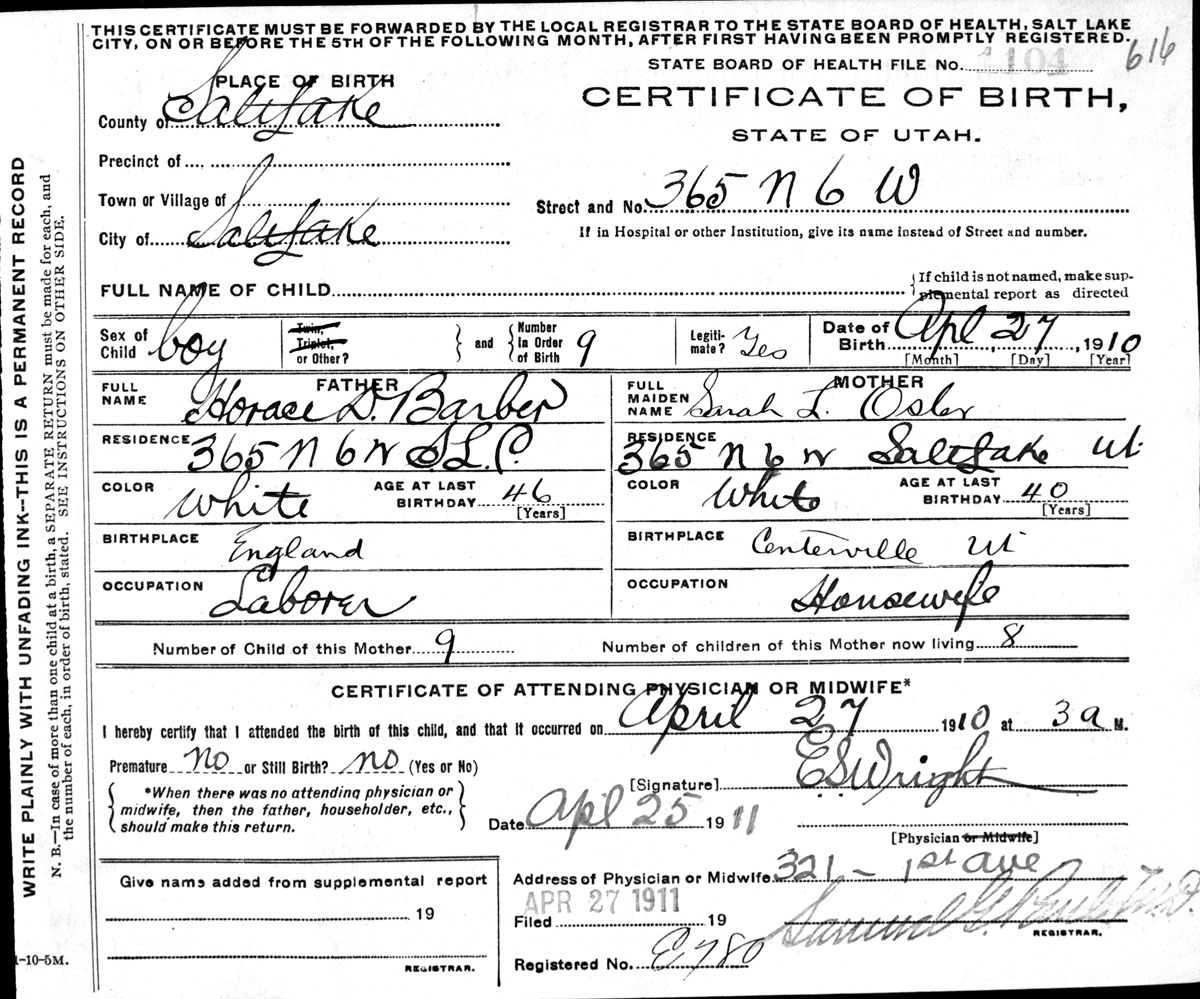 THIS CERTIFICATE MUST BE FORWARDED BY THE LOCAL REGISTRAR TO THE STATE BOARD OF HEALTH, SALT LAKE
CITY, ON OR BEFORE THE 5TH OF THE FOLLOWING MONTH, AFTER FIRST HAVING BEEN PROMPTLY REGISTERED.
616
STATE BOARD OF HEALTH FILE No. 1104
PLACE OF BIRTH
CERTIFICATE OF BIRTH,
STATE OF UTAH.
County of Salt Lake
Precinct of
Town or Village of
City of Salt Lake
Street and No. 365 N 6 W
If in Hospital or other Institution, give its name instead of Street and number.
FULL NAME OF CHILD
If child is not named, make sup-
plemental report as directed
Sex of Child boy
Twin, Triplet, or Other?
and Number In Order of Birth 9
Legiti-mate? Yes
Date of Birth Apl 27, 1910
[Month] [Day] [Year]
FATHER
FULL NAME Horace D. Barber
RESIDENCE 365 N 6 W S.L.C.
COLOR White AGE AT LAST BIRTHDAY 46 [Years]
BIRTHPLACE England
OCCUPATION Laborer
MOTHER
FULL MAIDEN NAME Sarah L. Osler
RESIDENCE 365 N 6 W Salt Lake Ut
COLOR White AGE AT LAST BIRTHDAY 40 [Years]
BIRTHPLACE Centerville Ut
OCCUPATION Housewife
Number of Child of this Mother 9 Number of children of this Mother now living 8
CERTIFICATE OF ATTENDING PHYSICIAN OR MIDWIFE*
I hereby certify that I attended the birth of this child, and that it occurred on April 27 1910 at 3 a M.
Premature no or Still Birth? no (Yes or No)
*When there was no attending physician or
midwife, then the father, householder, etc.,
should make this return.
[Signature] E S Wright
Date Apl 25 1911
[Physician or Midwife]
Address of Physician or Midwife 321 - 1st ave
Filed APR 27 1911 19
Samuel G. M.D.
REGISTRAR.
Registered No. E780
Give name added from supplemental report
19
REGISTRAR.
1-10-5M.
WRITE PLAINLY WITH UNFADING INK--THIS IS A PERMANENT RECORD
N. B.—In case of more than one child at a birth, a SEPARATE RETURN must be made for each, and
the number of each, in order of birth, stated. SEE INSTRUCTIONS ON OTHER SIDE.